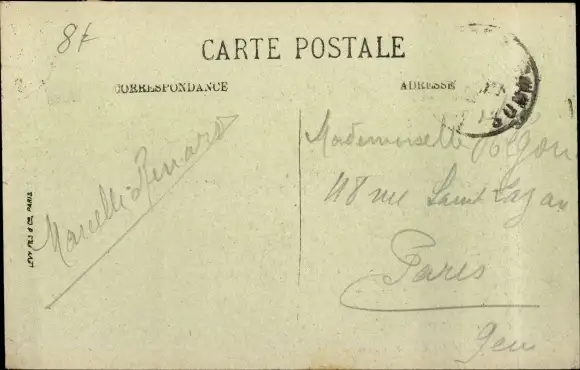 8f
CARTE POSTALE
CORRESPONDANCE
ADRESSE
Mademoiselle
118 rue Saint Lazare
Paris
9eme
Marcelle Renard
LEVY FILS & Cie, PARIS